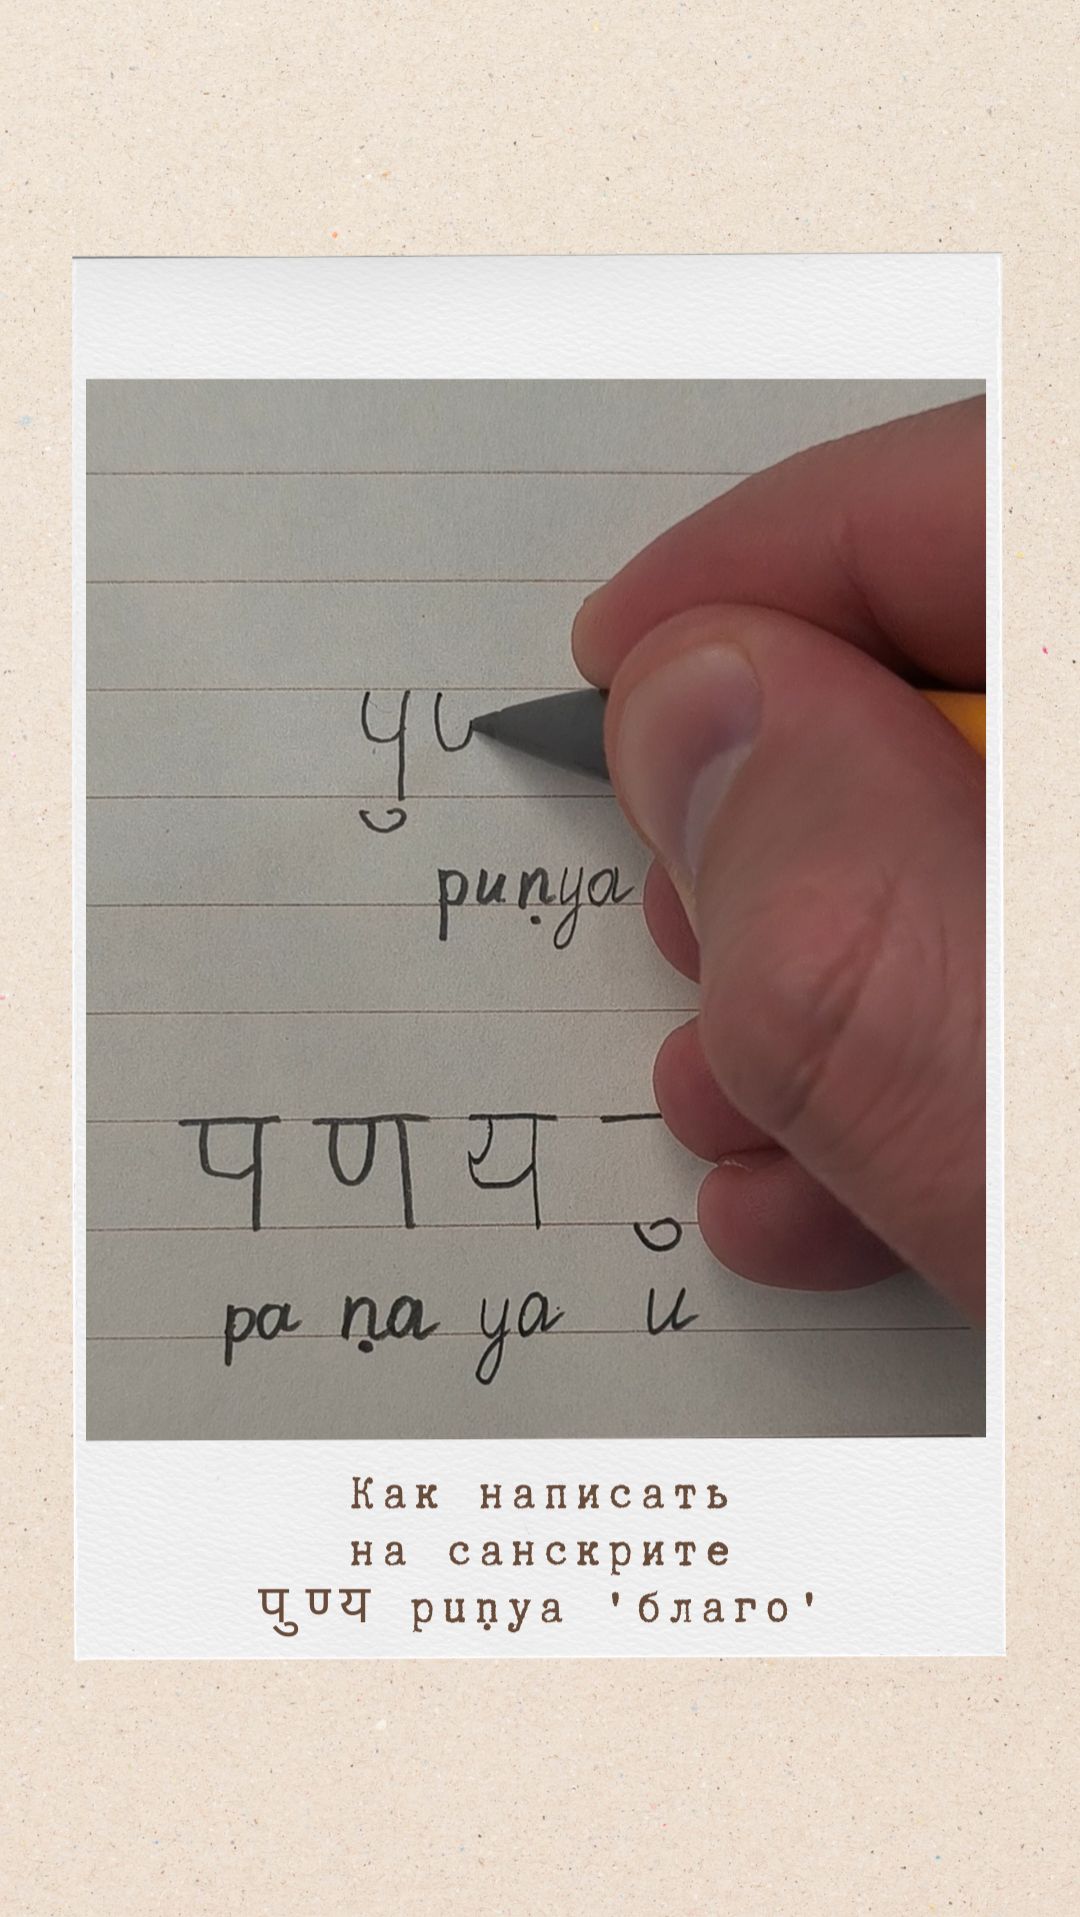 पु
puṇya
प ण य ु
pa ṇa ya u
Как написать
на санскрите
पुण्य puṇya 'благо'